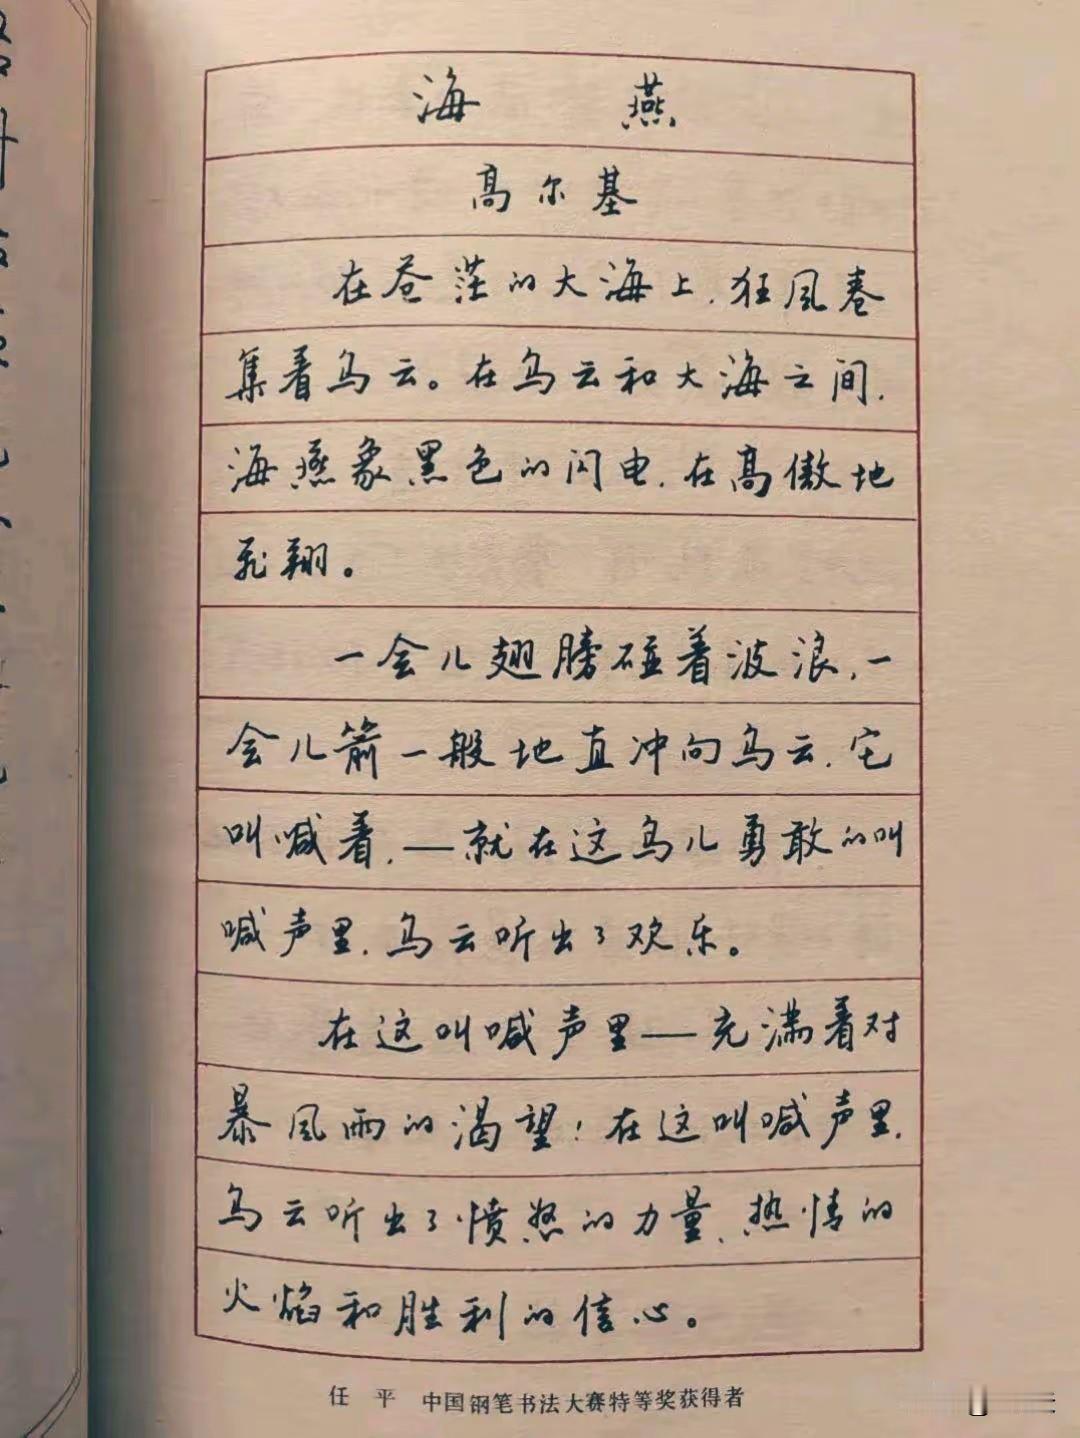 海 燕
高尔基
在苍茫的大海上,狂風卷
集着乌云。在乌云和大海之间,
海燕象黑色的闪电,在高傲地
飛翔。
一会儿翅膀碰着波浪,一
会儿箭一般地直冲向乌云,它
叫喊着,——就在这鸟儿勇敢的叫
喊声里,乌云听出了欢乐。
在这叫喊声里——充满着对
暴風雨的渴望!在这叫喊声里,
乌云听出了愤怒的力量,热情的
火焰和胜利的信心。
任 平 中国钢笔书法大赛特等奖获得者